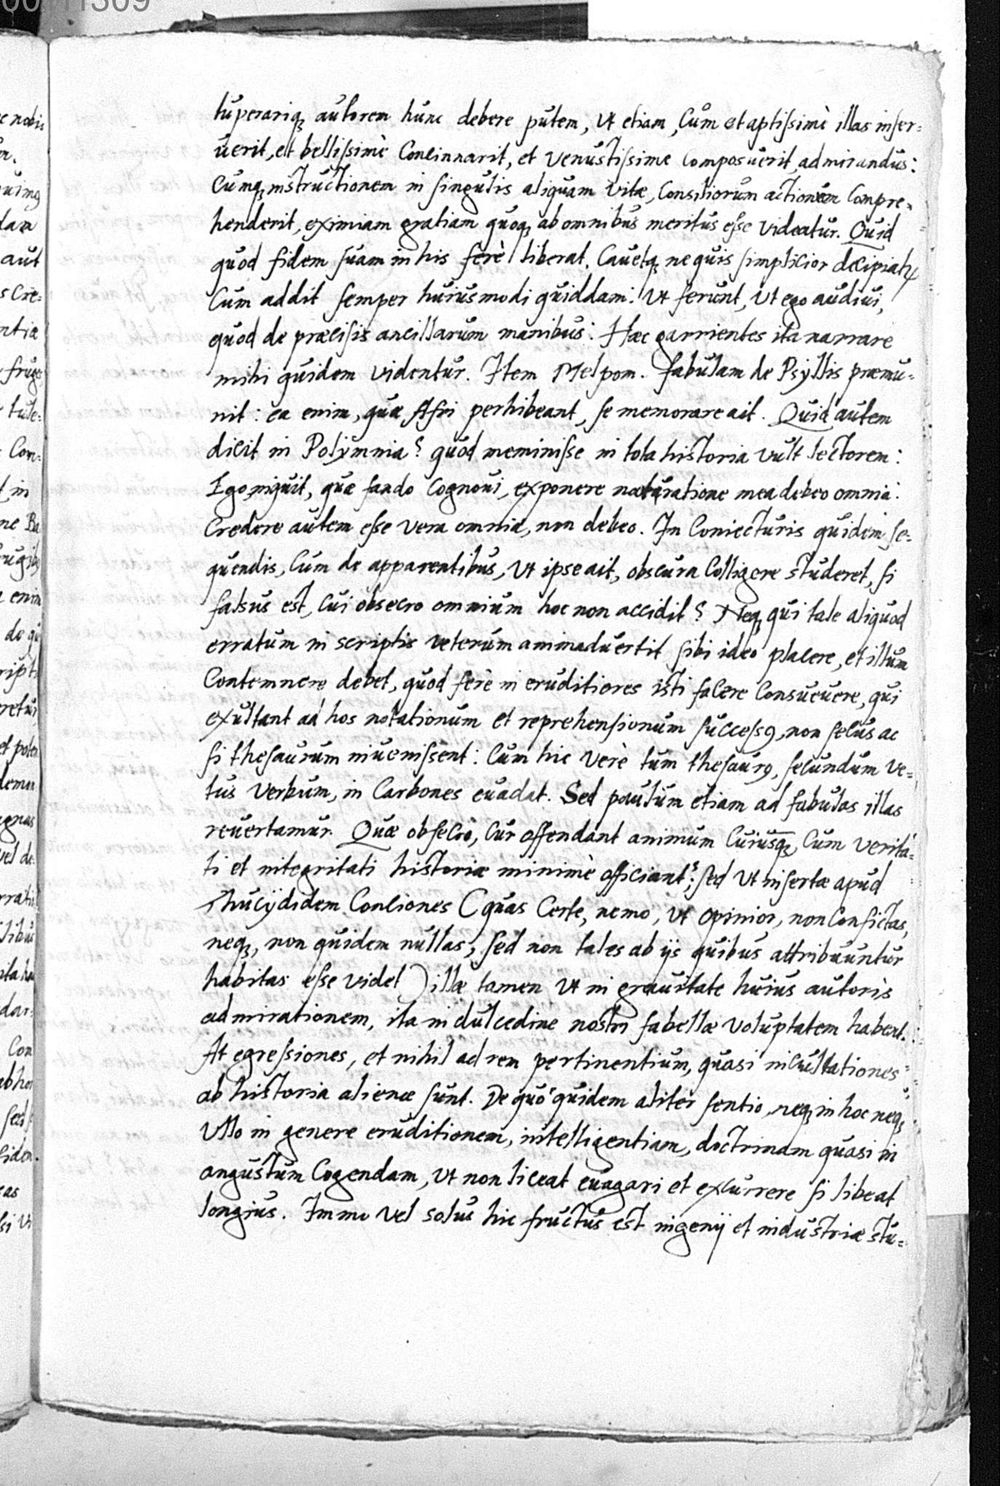 tuperariq, autorem hunc debere putem, Ut etiam, Cum et aptissimè illas inser-
uerit, et bellissimè Concinnarit, et venustissime composuerit, admirandus:
Cumq, instructionem in singulis aliquam Vitæ, Consiliorum actionum Compre-
henderit, eximiam gratiam quoq, ab omnibus meritus esse videatur. Quid
quod fidem suam in his ferè liberat, Cauetq, ne quis simplicior decipiatur
Cum addit semper huiusmodi quiddam: Ut ferunt, Ut ego audiui,
quod de præcisis ancillarum manibus: Hæc garrientes ita narrare
mihi quidem videntur. Item Melpom. fabulam de Psyllis præmu-
nit: ea enim, quæ Afri perhibeant, se memorare ait. Quid autem
dicit in Polymnia? quod meminisse in tota historia vult lectorem:
Ego, inquit, quæ fando Cognoui, exponere narratione mea debeo omnia:
Credere autem esse vera omnia, non debeo. In Coniecturis quidem se-
quendis, Cum de apparentibus, Ut ipse ait, obscura Colligere studeret, si
falsus est, Cui obsecro omnium hoc non accidit? Neq, qui tale aliquod
erratum in scriptis veterum animaduertit sibi ideo placere, et illum
Contemnere debet, quod ferè ineruditiores isti facere Consueuere, qui
exultant ad hos notationum et reprehensionum successus, non secus ac
si thesaurum inuenissent: Cum hic verè tum thesaurus, secundum ve-
tus verbum, in Carbones euadat. Sed paulum etiam ad fabulas illas
reuertamur. Quæ obsecro, Cur offendant animum Cuiusq, Cum verita-
ti et integritati historiæ minimè officiant? sed Ut insertæ apud
Thucydidem Conciones (quas Certe, nemo, Ut opinior, non Confictas,
neq, non quidem nullas, sed non tales ab ijs quibus attribuuntur
habitas esse videt) illæ tamen Ut in grauitate huius autoris
admirationem, ita in dulcedine nostri fabellæ voluptatem habent.
At egressiones, et nihil ad rem pertinentium, quasi inculcationes
ab historia alienæ sunt. De quo quidem aliter sentio, neq, in hoc neq,
Ullo in genere eruditionem, intelligentiam, doctrinam quasi in
angustum Cogendam, Ut non liceat euagari et excurrere si libeat
longius. Immo vel solus hic fructus est ingenij et industriæ stu-